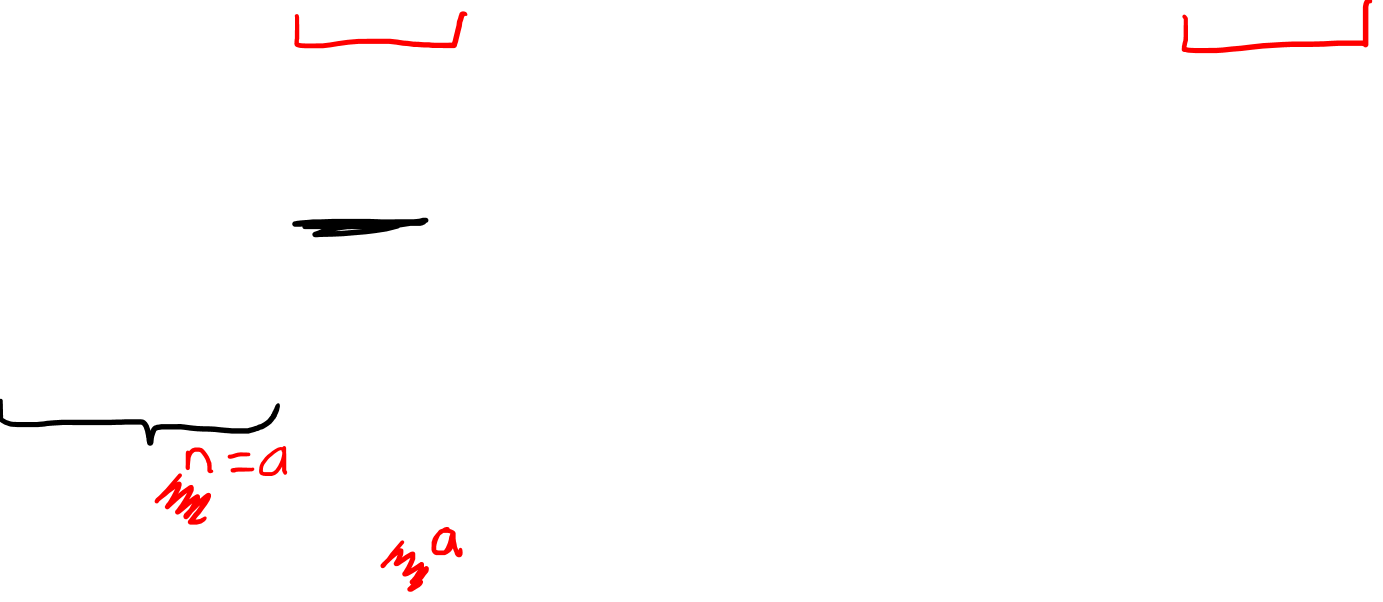 n = a
a